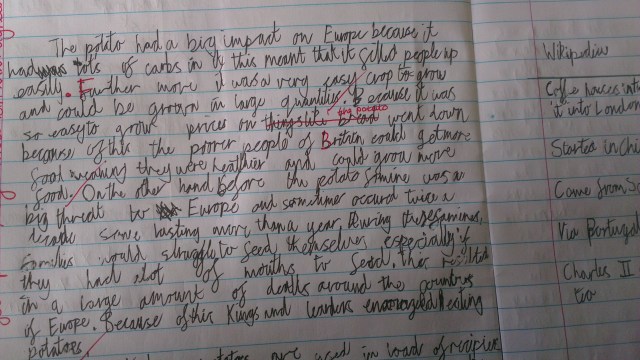 The potato had a big impact on Europe because it
had lots of carbs in it this meant that it filled people up
easily. Further more it was a very easy crop to grow
and could be grown in large quantities. Because it was
the potato
so easy to grow prices on things like bread went down
because of this the poorer people of Britain could get more
food meaning they were healthier and could grow more
food. On the other hand before the potato famine was a
big threat to Europe and sometimes occured twice a
decade some lasting more than a year. During these famines,
families would struggle to feed themselves especially if
they had alot of mouths to feed, this resulted
in a large amount of deaths around the countries
of Europe. Because of this Kings and leaders encouraged eating
potatoes.
potatoes are used in loads of recipies
Wikipedia
Coffee houses int
it into London
Started in Chi
Came from S
Via Portugal
Charles II
tea